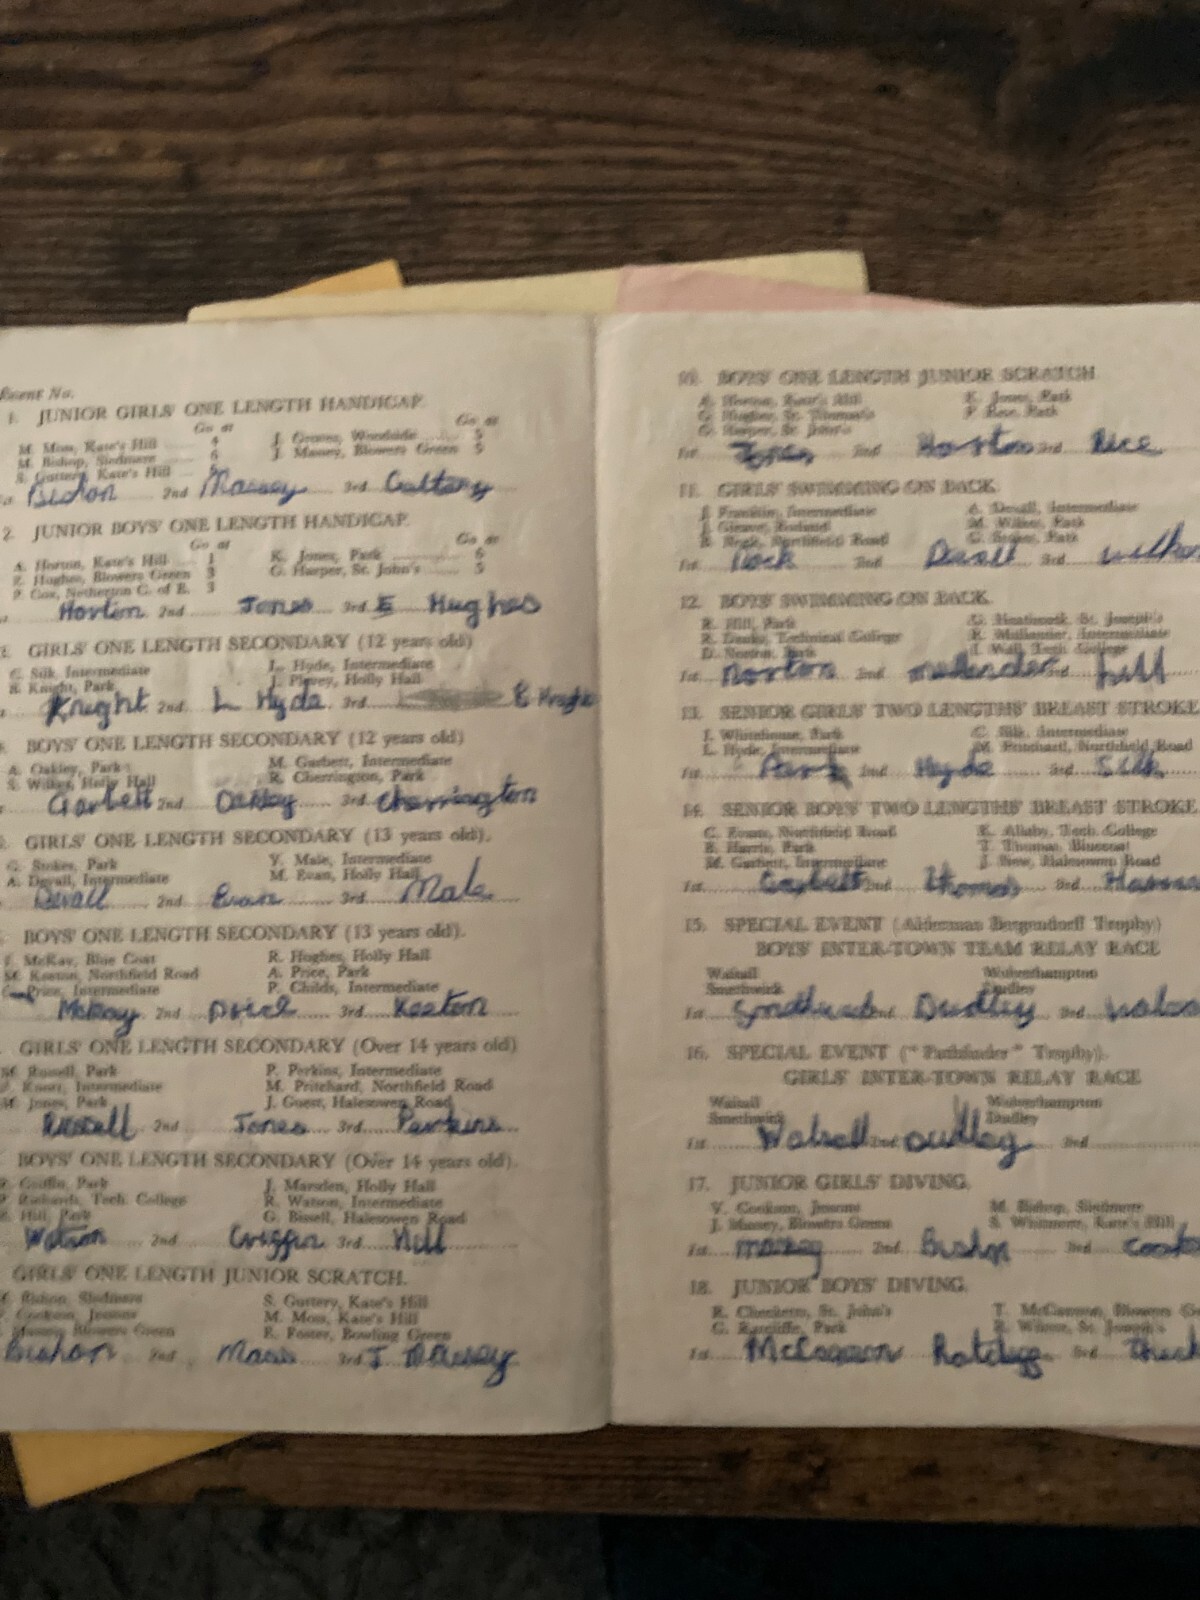 Event No.
1. JUNIOR GIRLS' ONE LENGTH HANDICAP.
Go at Go at
M. Moss, Kate's Hill 4 J. Groves, Woodside 5
M. Bishop, Sledmere 6 J. Massey, Blowers Green 5
S. Guttery, Kate's Hill
Bishop 2nd Massey 3rd Guttery
2. JUNIOR BOYS' ONE LENGTH HANDICAP.
Go at Go at
A. Horton, Kate's Hill 1 K. Jones, Park 6
Hughes, Blowers Green 3 G. Harper, St. John's 5
P. Cox, Netherton C. of E. 3
Horton 2nd Jones 3rd E Hughes
GIRLS' ONE LENGTH SECONDARY (12 years old)
C. Silk, Intermediate L. Hyde, Intermediate
B. Knight, Park Holly Hall
Knight 2nd L Hyde 3rd
BOYS' ONE LENGTH SECONDARY (12 years old)
A. Oakley, Park M. Garbett, Intermediate
Holly Hall R. Cherrington, Park
Garbett 2nd Oakley 3rd Cherrington
GIRLS' ONE LENGTH SECONDARY (13 years old).
G. Stokes, Park V. Male, Intermediate
A. Devall, Intermediate M. Evan, Holly Hall
Devall 2nd Evan 3rd Male
BOYS' ONE LENGTH SECONDARY (13 years old).
McKay, Blue Coat R. Hughes, Holly Hall
M. Keeton, Northfield Road A. Price, Park
Price, Intermediate P. Childs, Intermediate
McKay 2nd Price 3rd Keeton
GIRLS' ONE LENGTH SECONDARY (Over 14 years old)
M. Russell, Park P. Perkins, Intermediate
Intermediate M. Pritchard, Northfield Road
M. Jones, Park J. Guest, Halesowen Road
Russell 2nd Jones 3rd Perkins
BOYS' ONE LENGTH SECONDARY (Over 14 years old).
Griffin, Park J. Marsden, Holly Hall
Richards, Tech. College R. Watson, Intermediate
Hill, Park G. Bissell, Halesowen Road
Watson 2nd Griffin 3rd Hill
GIRLS' ONE LENGTH JUNIOR SCRATCH.
Bishop, Sledmere S. Guttery, Kate's Hill
Cookson, Jessons M. Moss, Kate's Hill
Massey, Blowers Green E. Foster, Bowling Green
Bishop 2nd Moss 3rd J Massey
10. BOYS' ONE LENGTH JUNIOR SCRATCH.
A. Horton, Kate's Hill K. Jones, Park
G. Hughes, St. Thomas's Park
G. Harper, St. John's
1st Jones 2nd Horton 3rd Rice
11. GIRLS' SWIMMING ON BACK.
J. Franklin, Intermediate A. Devall, Intermediate
M. Wilkes, Park
Northfield Road G. Stokes, Park
1st 2nd Devall 3rd Wilkes
12. BOYS' SWIMMING ON BACK.
R. Hill, Park St. Joseph's
Technical College Intermediate
D. Norton, Park J. Wall, Tech. College
1st Norton 2nd 3rd Hill
13. SENIOR GIRLS' TWO LENGTHS' BREAST STROKE
J. Whitehouse, Park C. Silk, Intermediate
L. Hyde, Intermediate M. Pritchard, Northfield Road
1st Park 2nd Hyde 3rd Silk
14. SENIOR BOYS' TWO LENGTHS' BREAST STROKE
C. Evans, Northfield Road K. Allsby, Tech. College
B. Harris, Park T. Thomas, Bluecoat
M. Garbett, Intermediate J. New, Halesowen Road
1st Garbett 2nd Thomas 3rd
15. SPECIAL EVENT (Alderman Bergendorff Trophy)
BOYS' INTER-TOWN TEAM RELAY RACE
Walsall Wolverhampton
Smethwick Dudley
1st Smethwick 2nd Dudley 3rd
16. SPECIAL EVENT ("Pathfinder" Trophy).
GIRLS' INTER-TOWN RELAY RACE
Walsall Wolverhampton
Smethwick Dudley
1st Walsall 2nd Dudley 3rd
17. JUNIOR GIRLS' DIVING.
V. Cookson, Jessons M. Bishop, Sledmere
J. Massey, Blowers Green S. Whitmore, Kate's Hill
1st Massey 2nd Bishop 3rd
18. JUNIOR BOYS' DIVING.
R. Checketts, St. John's T. McCarron, Blowers
G. Ratcliffe, Park St. Joseph's
1st 3rd